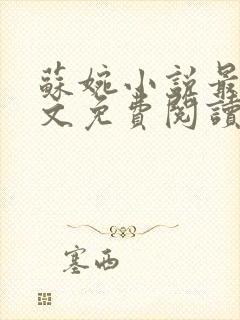 蘇婉小說最
文免費閱讀
塞西